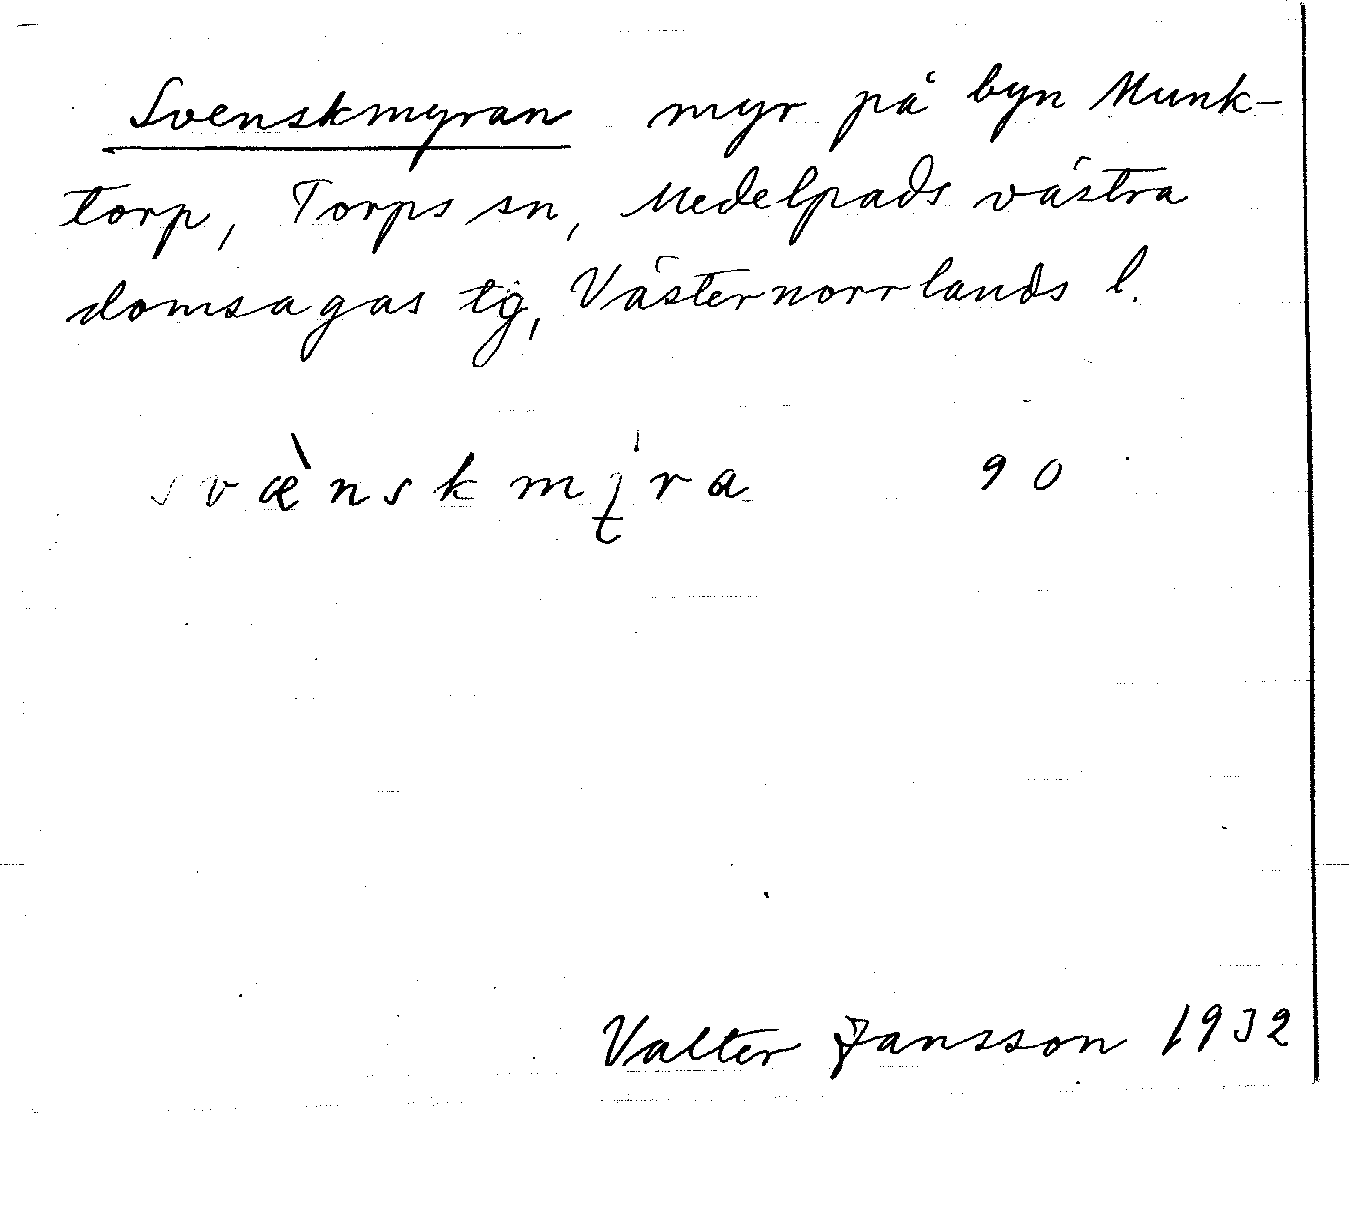 Svenskmyran myr på byn Munk-
torp, Torps sn, Medelpads västra
domsagas tg, Västernorrlands l.
svæ̀nskmyra 90
Valter Jansson 1932